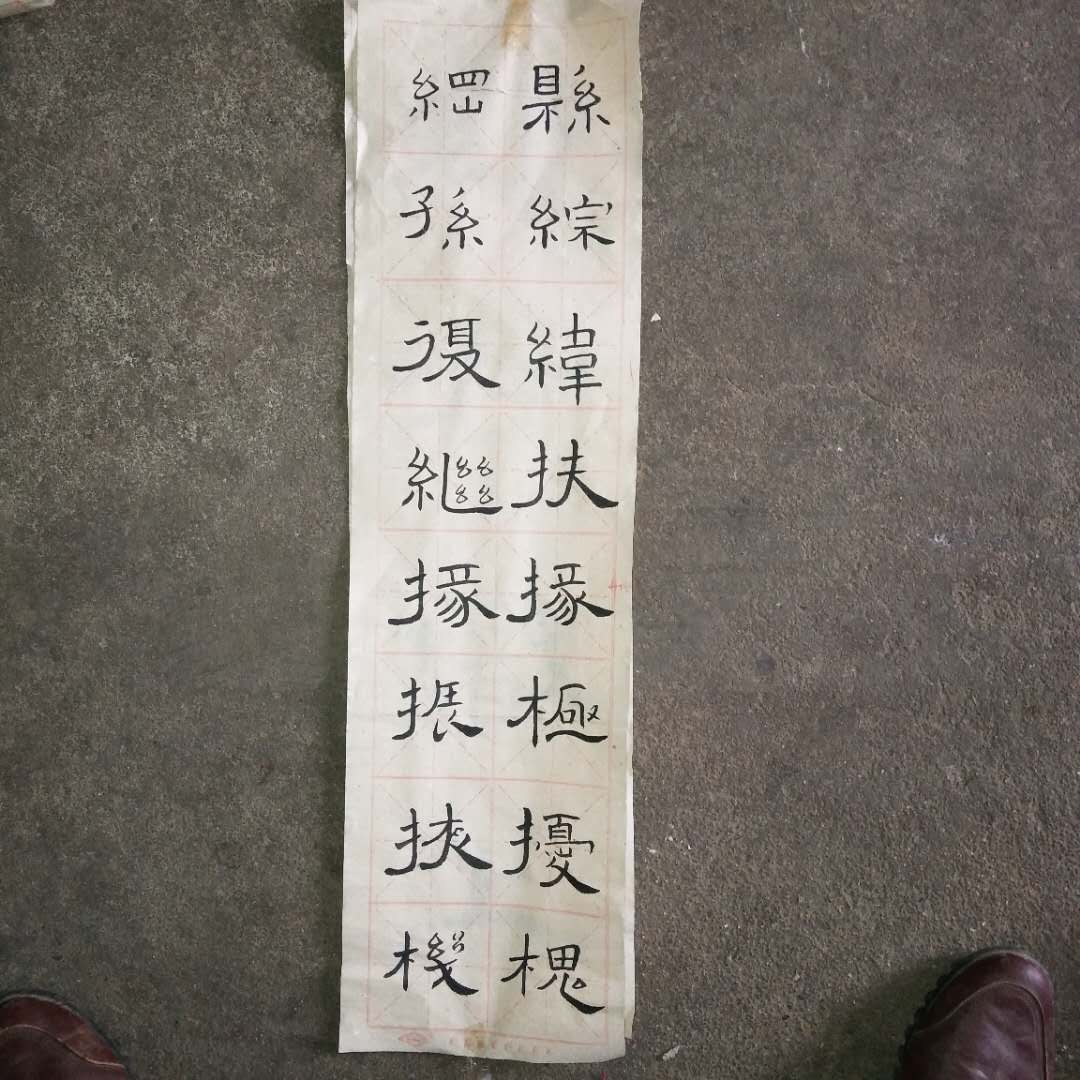 縣綜緯扶掾極擾槐
綱孫復繼掾振挾機